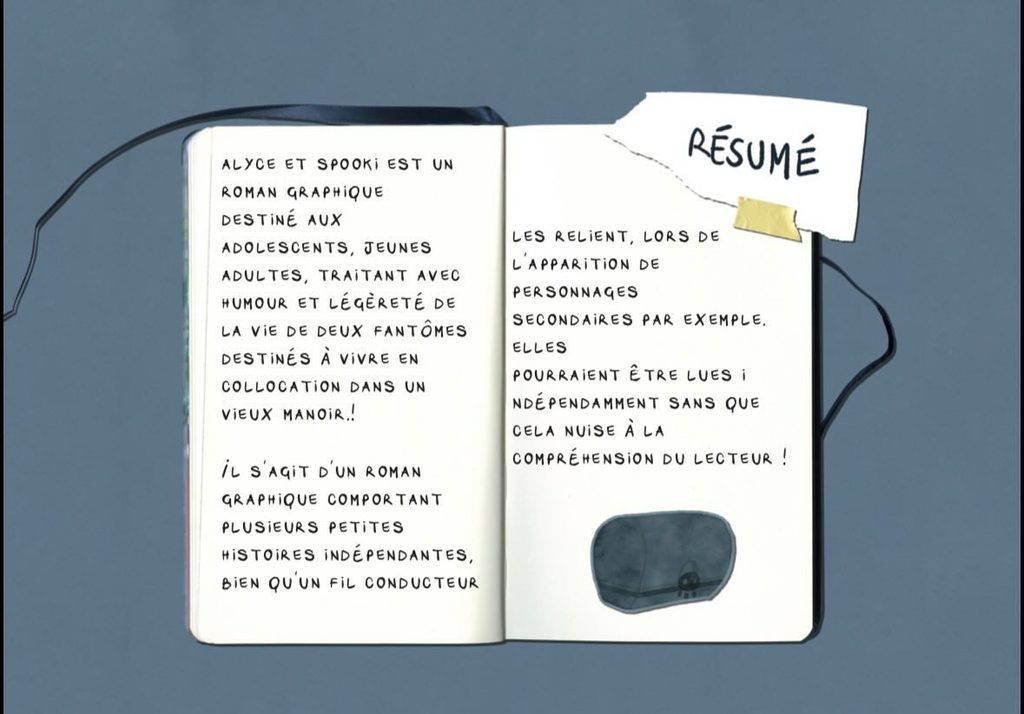 RÉSUMÉ
ALYCE ET SPOOKI EST UN
ROMAN GRAPHIQUE
DESTINÉ AUX
ADOLESCENTS, JEUNES
ADULTES, TRAITANT AVEC
HUMOUR ET LÉGÈRETÉ DE
LA VIE DE DEUX FANTÔMES
DESTINÉS À VIVRE EN
COLLOCATION DANS UN
VIEUX MANOIR.!
IL S'AGIT D'UN ROMAN
GRAPHIQUE COMPORTANT
PLUSIEURS PETITES
HISTOIRES INDÉPENDANTES,
BIEN QU'UN FIL CONDUCTEUR
LES RELIENT, LORS DE
L'APPARITION DE
PERSONNAGES
SECONDAIRES PAR EXEMPLE.
ELLES
POURRAIENT ÊTRE LUES I
NDÉPENDAMMENT SANS QUE
CELA NUISE À LA
COMPRÉHENSION DU LECTEUR !